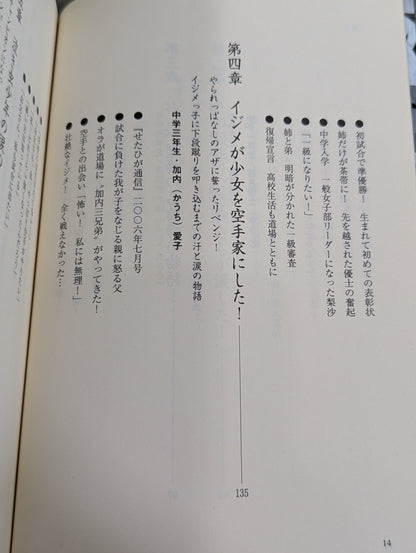 ●初試合で準優勝！　生まれて初めての表彰状
●姉だけが茶帯に！　先を越された優士の奮起
●中学入学　一般女子部リーダーになった梨沙
●「一級になりたい！」
●姉と弟　明暗が分かれた一級審査
●復帰宣言　高校生活も道場とともに
第四章　イジメが少女を空手家にした！ 135
やられっぱなしのアザに誓ったリベンジ！
イジメっ子に下段蹴りを叩き込むまでの汗と涙の物語
中学三年生・加内（かうち）愛子
●『せたひが通信』二〇〇六年七月号
●試合に負けた我が子をなじる親に怒る父
●オラが道場に〝加内三兄弟〟がやってきた！
●空手との出会い「怖い！　私には無理！」
●壮絶なイジメ！　全く戦えなかった…
14